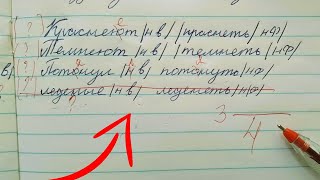 [?] Красмеют |н в/ |краснеть |нФ/
[?] Темнеют |н в/ |темнеть |нФ/
в) [?] Потонул |н в/ потонуть |нФ/
[?] |н в/ леденеть |нФ/
3
4